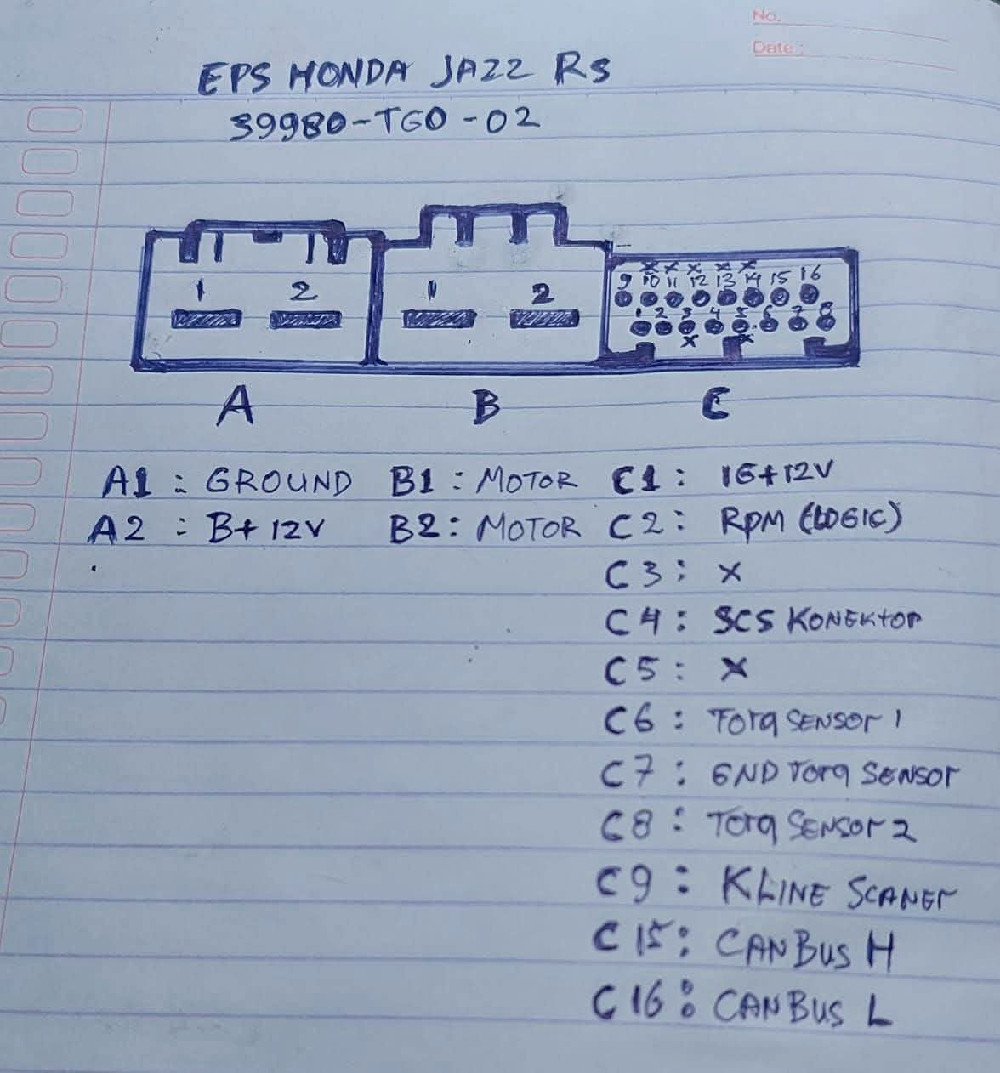 No.
Date:
EPS HONDA JAZZ RS
39980-TG0-02
1 2 1 2 9 10 11 12 13 14 15 16
1 2 3 4 5 6 7 8
A B C
A1 : GROUND B1 : MOTOR C1 : IG+12V
A2 : B+ 12V B2 : MOTOR C2 : RPM (LOGIC)
C3 : X
C4 : SCS KONEKTOR
C5 : X
C6 : Torq SENSOr 1
C7 : GND Torq SENSOr
C8 : Torq SENSOr 2
C9 : KLINE SCANEr
C15 : CANBUS H
C16 : CANBUS L